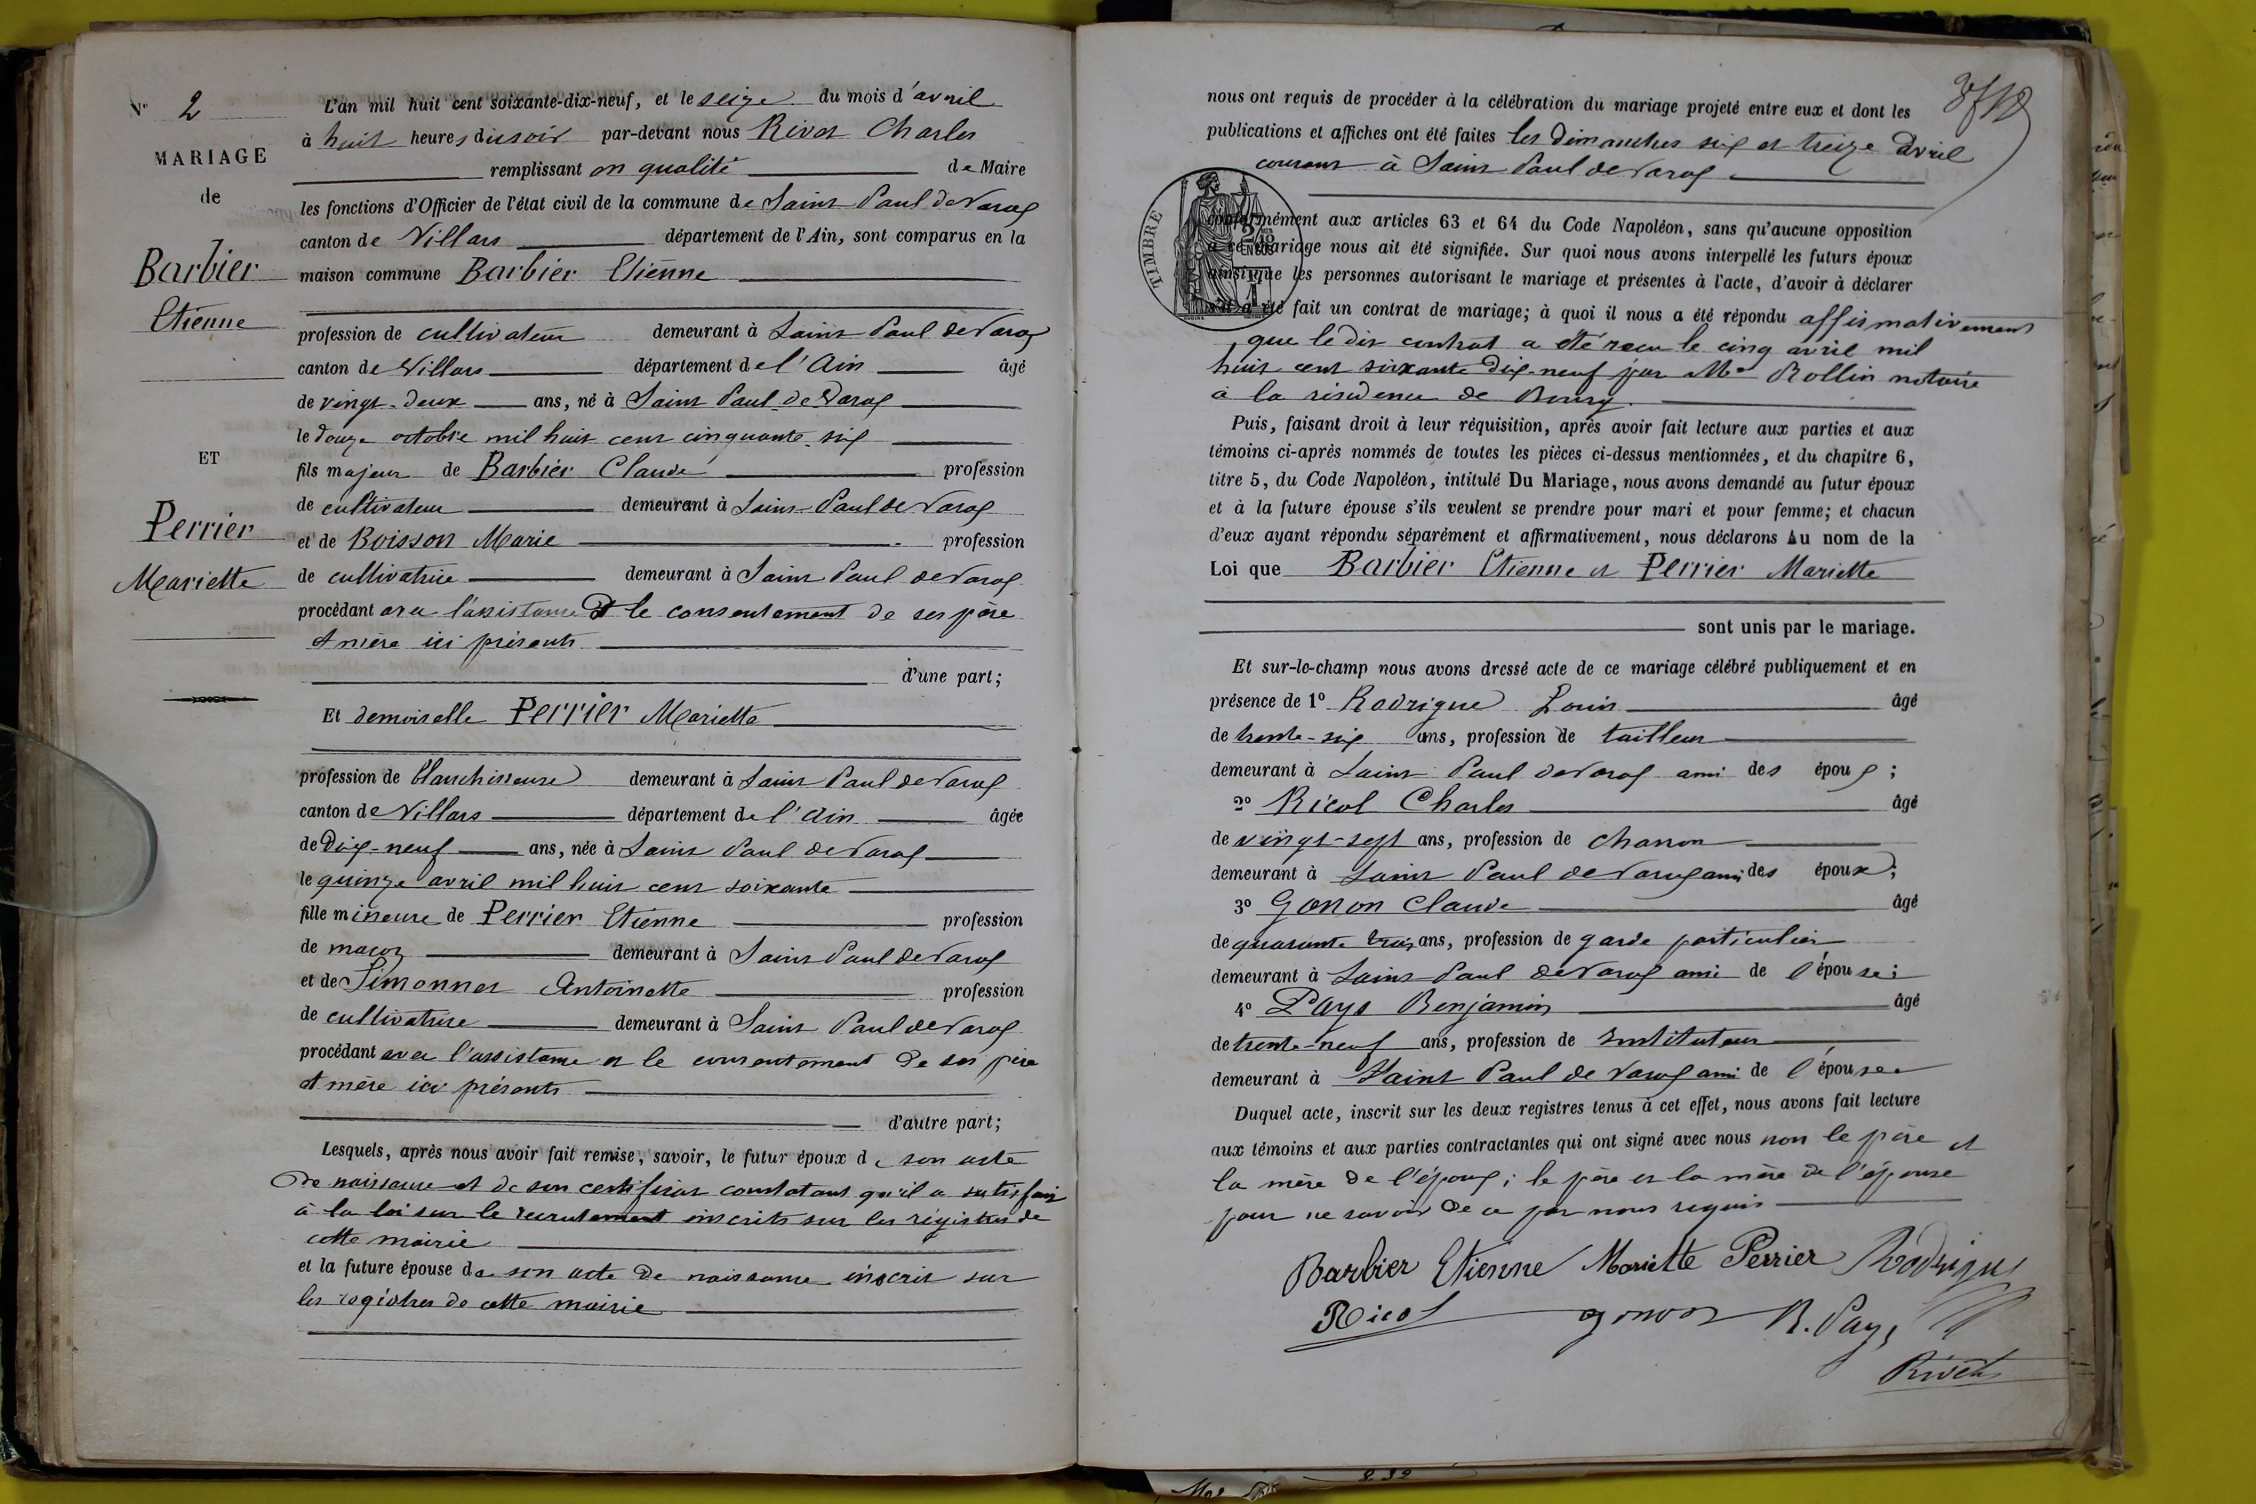 N° 2
MARIAGE
de
Barbier
Etienne
ET
Perrier
Mariette
L'an mil huit cent soixante-dix-neuf, et le seize du mois d'avril
à huit heures du soir par-devant nous Rivet Charles
remplissant en qualité de Maire
les fonctions d'Officier de l'état civil de la commune de Saint Paul de Varax
canton de Villars département de l'Ain, sont comparus en la
maison commune Barbier Etienne
profession de cultivateur demeurant à Saint Paul de Varax
canton de Villars département de l'Ain âgé
de vingt-deux ans, né à Saint Paul de Varax
le douze octobre mil huit cent cinquante six
fils majeur de Barbier Claude profession
de cultivateur demeurant à Saint Paul de Varax
et de Boisson Marie profession
de cultivatrice demeurant à Saint Paul de Varax
procédant avec l'assistance et le consentement de ses père
et mère ici présents
d'une part;
Et demoiselle Perrier Mariette
profession de blanchisseuse demeurant à Saint Paul de Varax
canton de Villars département de l'Ain âgée
de Dix-neuf ans, née à Saint Paul de Varax
le quinze avril mil huit cent soixante
fille mineure de Perrier Etienne profession
de maçon demeurant à Saint Paul de Varax
et de Simonnet Antoinette profession
de cultivatrice demeurant à Saint Paul de Varax
procédant avec l'assistance et le consentement de ses père
et mère ici présents
d'autre part;
Lesquels, après nous avoir fait remise, savoir, le futur époux de son acte
de naissance et de son certificat constatant qu'il a satisfait
à la loi sur le recrutement inscrits sur les régistres de
cette mairie
et la future épouse de son acte de naissance inscrit sur
les registres de cette mairie
nous ont requis de procéder à la célébration du mariage projeté entre eux et dont les
publications et affiches ont été faites les dimanches six et treize Avril
courant à Saint Paul de Varax
TIMBRE
conformément aux articles 63 et 64 du Code Napoléon, sans qu'aucune opposition
à ce mariage nous ait été signifiée. Sur quoi nous avons interpellé les futurs époux
ainsi que les personnes autorisant le mariage et présentes à l'acte, d'avoir à déclarer
s'il a été fait un contrat de mariage; à quoi il nous a été répondu affirmativement
que le dit contrat a été reçu le cinq avril mil
huit cent soixante dix-neuf par Me Rollin notaire
à la résidence de Bourg.
Puis, faisant droit à leur réquisition, après avoir fait lecture aux parties et aux
témoins ci-après nommés de toutes les pièces ci-dessus mentionnées, et du chapitre 6,
titre 5, du Code Napoléon, intitulé Du Mariage, nous avons demandé au futur époux
et à la future épouse s'ils veulent se prendre pour mari et pour femme; et chacun
d'eux ayant répondu séparément et affirmativement, nous déclarons Au nom de la
Loi que Barbier Etienne et Perrier Mariette
sont unis par le mariage.
Et sur-le-champ nous avons dressé acte de ce mariage célébré publiquement et en
présence de 1° Rodrigue Louis âgé
de trente-six ans, profession de tailleur
demeurant à Saint Paul de Varax ami des époux;
2° Ricol Charles âgé
de vingt-sept ans, profession de charron
demeurant à Saint Paul de Varax ami des époux;
3° Gonon Claude âgé
de quarante trois ans, profession de garde particulier
demeurant à Saint-Paul de Varax ami de l'épouse;
4° Pays Benjamin âgé
de trente-neuf ans, profession de Instituteur
demeurant à Saint Paul de Varax ami de l'épouse
Duquel acte, inscrit sur les deux registres tenus à cet effet, nous avons fait lecture
aux témoins et aux parties contractantes qui ont signé avec nous non le père et
la mère de l'époux; le père et la mère de l'épouse
pour ne savoir de ce par nous requis
Barbier Etienne Mariette Perrier Rodrigue
Ricol gonon B. Pays
Rivet